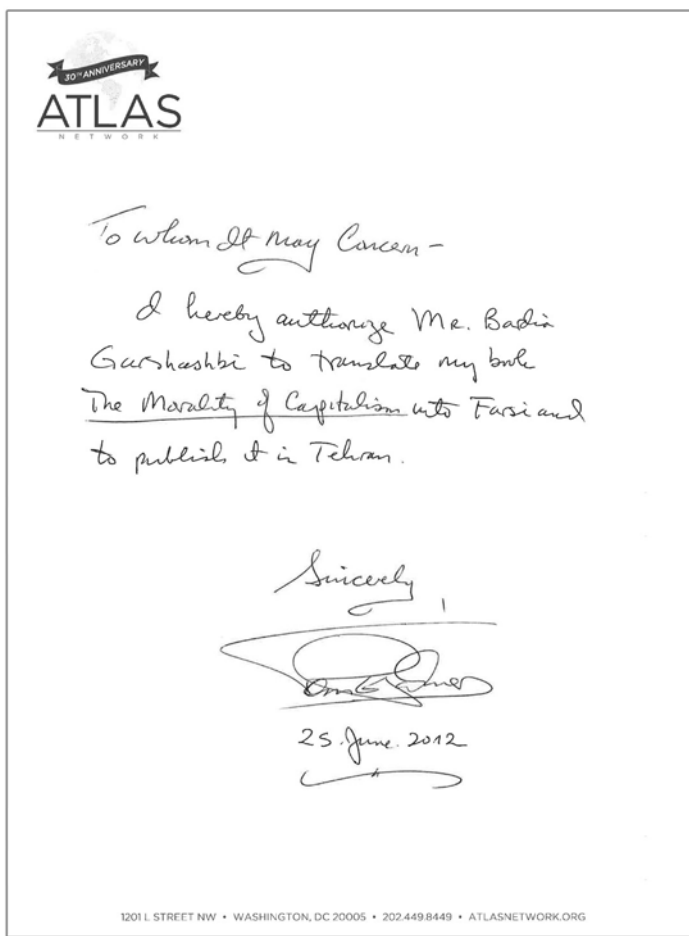 30TH ANNIVERSARY
ATLAS
NETWORK
To whom It may Concern –
I hereby authorize Mr. Bardia
Garshashbi to translate my book
The Morality of Capitalism into Farsi and
to publish it in Tehran.
Sincerely
25. June. 2012
1201 L STREET NW • WASHINGTON, DC 20005 • 202.449.8449 • ATLASNETWORK.ORG